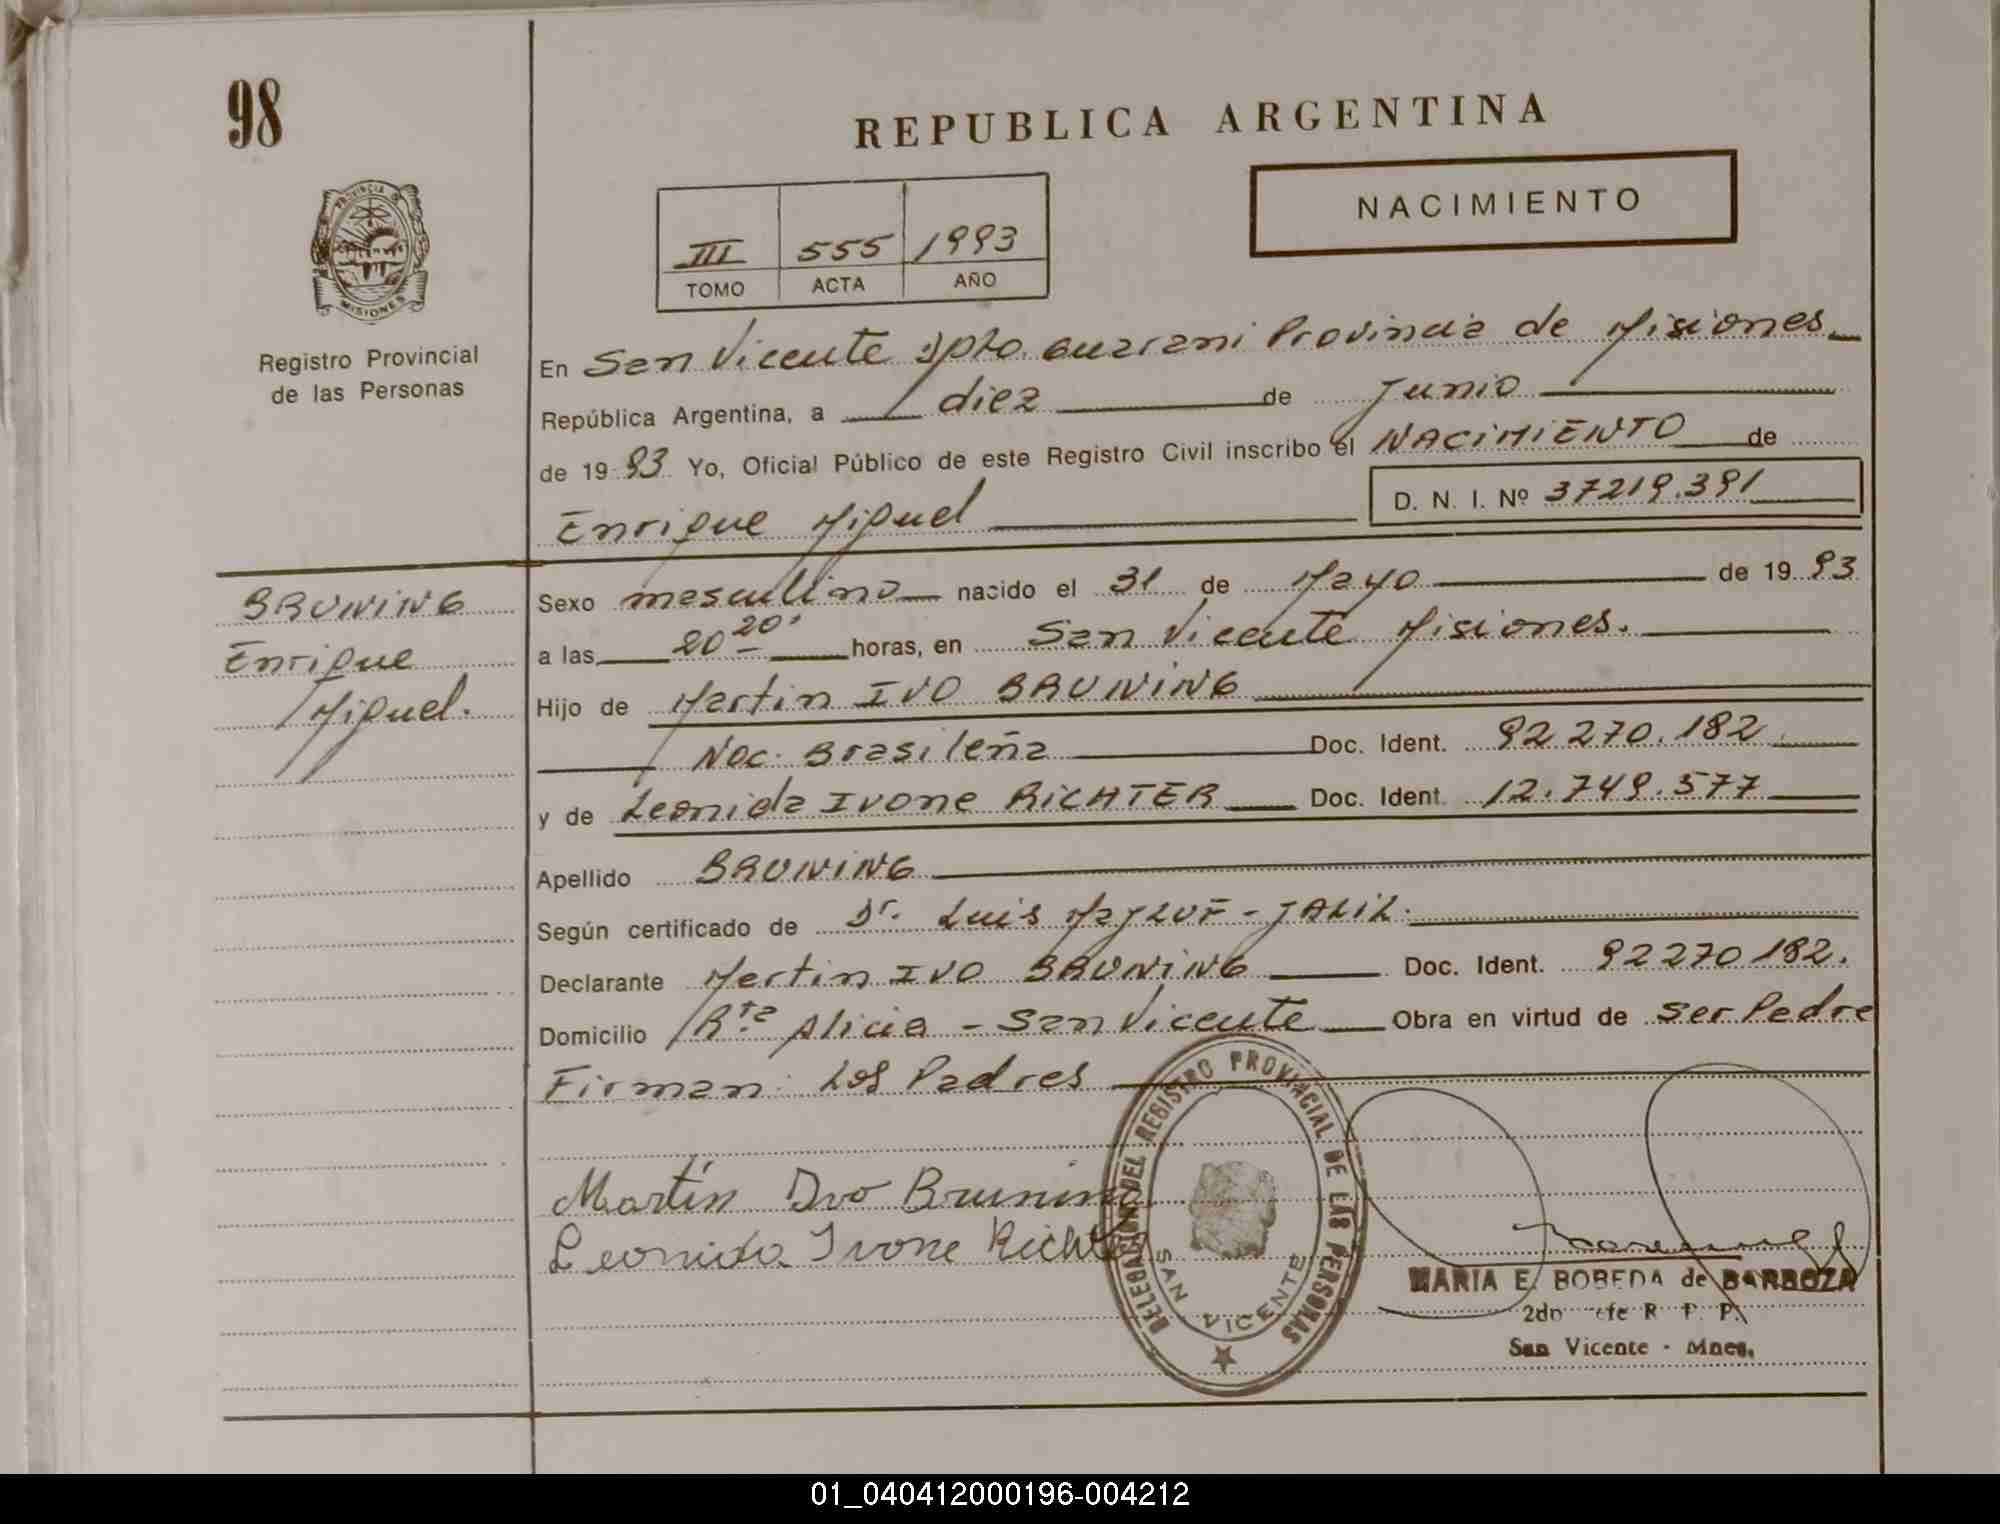 98
REPUBLICA ARGENTINA
NACIMIENTO
III 555 1993
TOMO ACTA AÑO
PROVINCIA
MISIONES
Registro Provincial
de las Personas
En San Vicente Dpto. Guarani Provincia de Misiones
República Argentina, a diez de Junio
de 1993 Yo, Oficial Público de este Registro Civil inscribo el NACIMIENTO de
Enrique Miguel D. N. I. Nº 37219.391
BRUNING
Enrique
Miguel.
Sexo masculino nacido el 31 de Mayo de 1993
a las 20 20' horas, en San Vicente Misiones.
Hijo de Martin IVO BRUNING
Nac. Brasileña Doc. Ident. 92 270.182
y de Leonida Ivone RICHTER Doc. Ident. 12.749.577
Apellido BRUNING
Según certificado de Dr. Luis - JALIL.
Declarante Martin IVO BRUNING Doc. Ident. 92270182.
Domicilio Rta Alicia - San Vicente Obra en virtud de ser Padre
Firman: Los Padres
Martín Ivo Bruning
Leonida Ivone Richter
DELEGACION DEL REGISTRO PROVINCIAL DE LAS PERSONAS
SAN VICENTE
MARIA E. BOBEDA de BARBOZA
2do Jefe R. P. P.
San Vicente - Mnes.
01_040412000196-004212